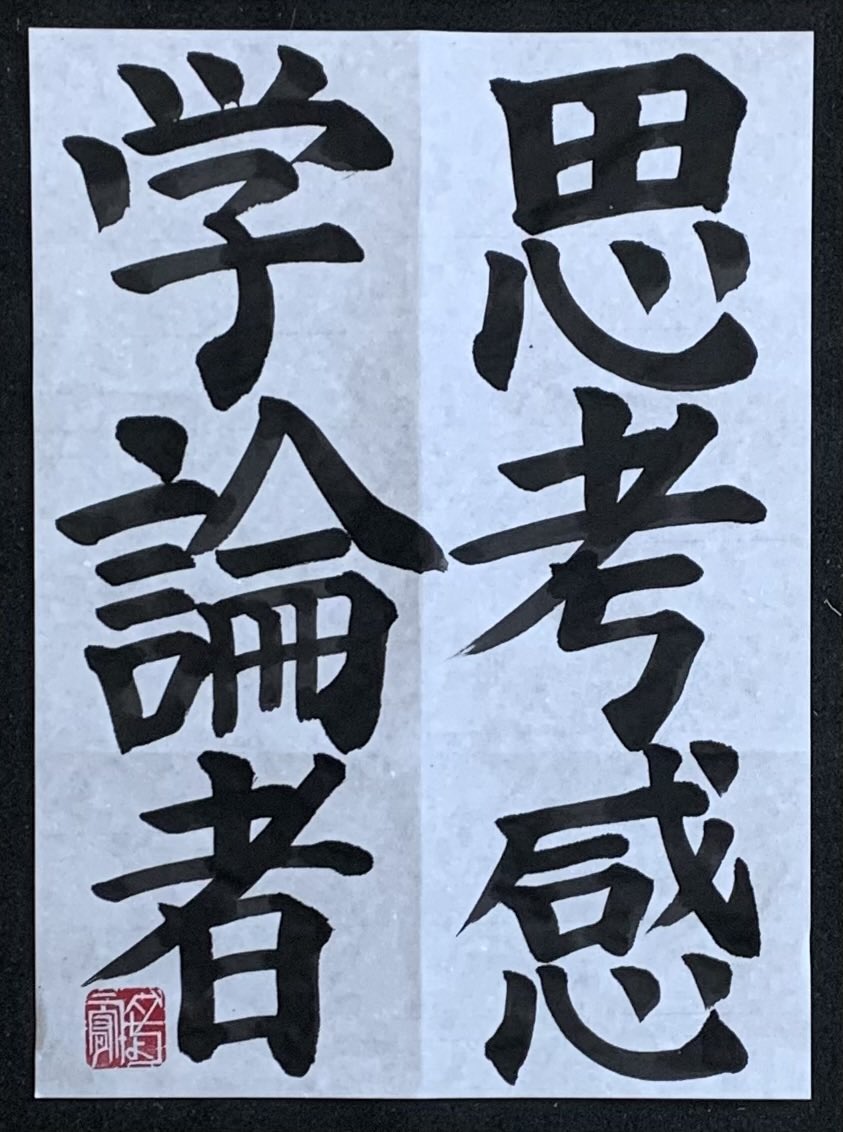 思考感
学論者